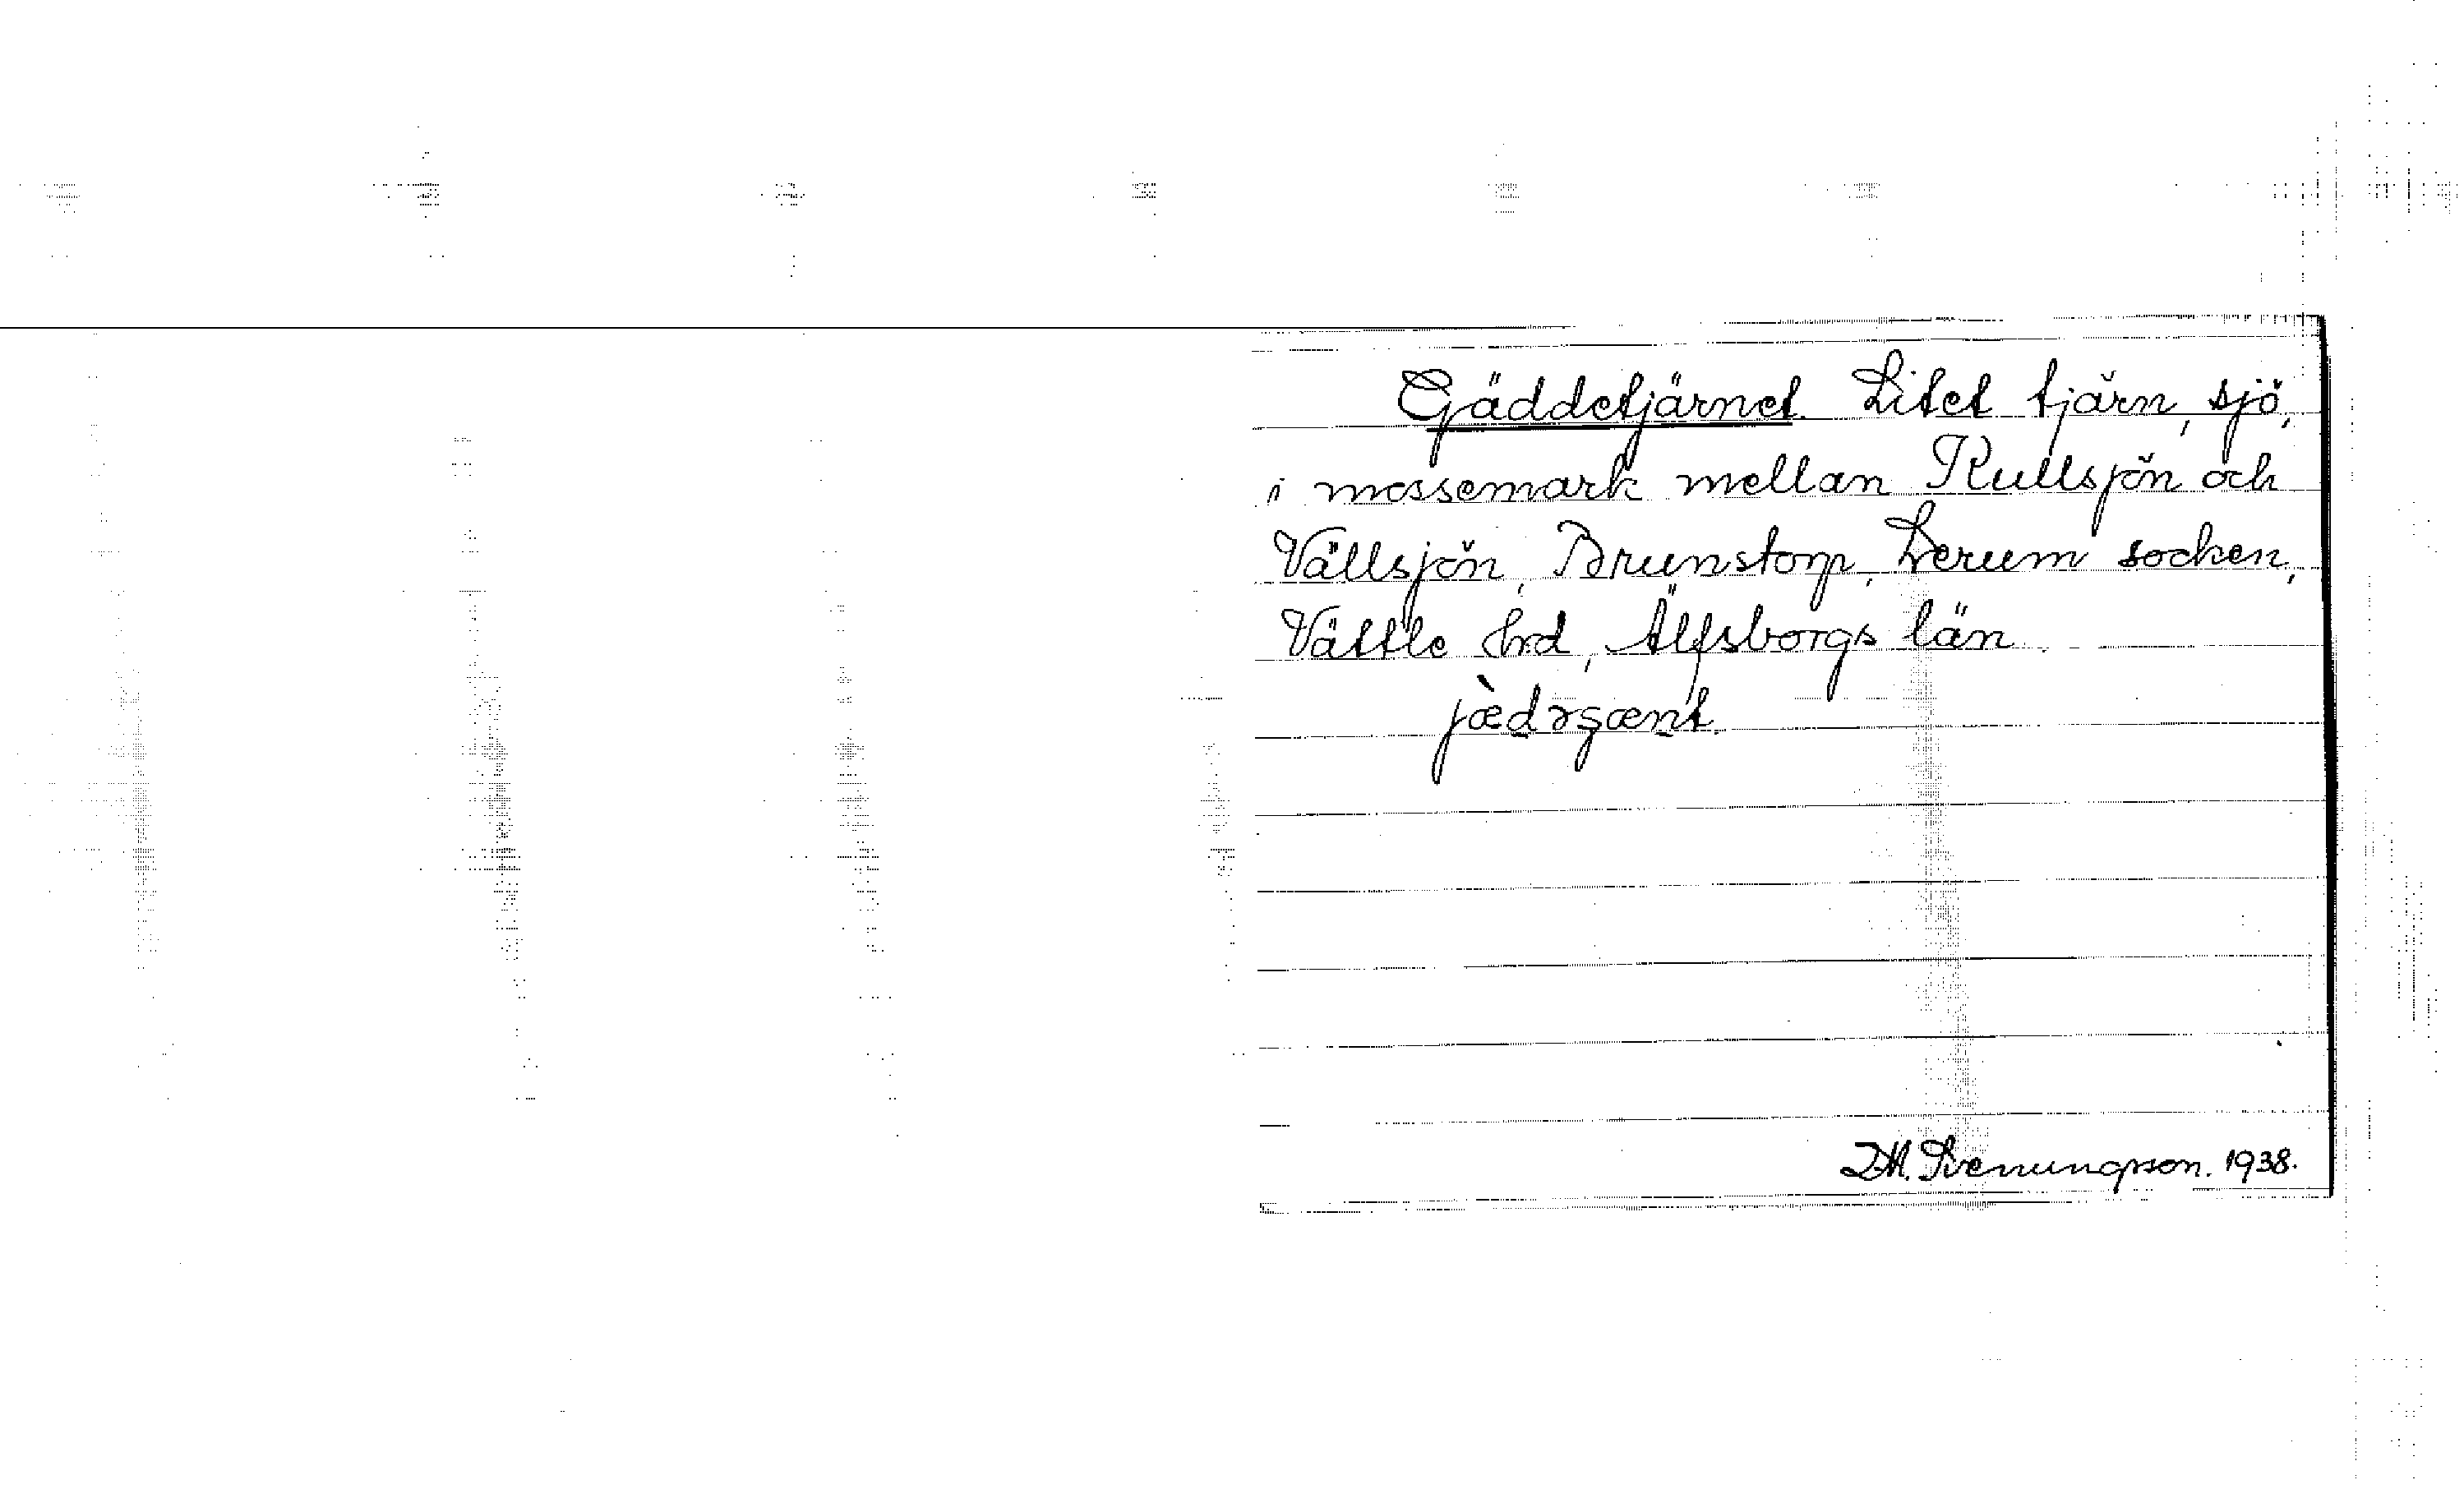 Gäddetjärnet. Litet tjärn, sjö,
i mossemark mellan Kullsjön och
Vällsjön, Brunstorp, Lerum socken,
Vättle hrd, Älfsborgs län.
jæ̀dəʂæɳt.
D.M. Svenungsson. 1938.